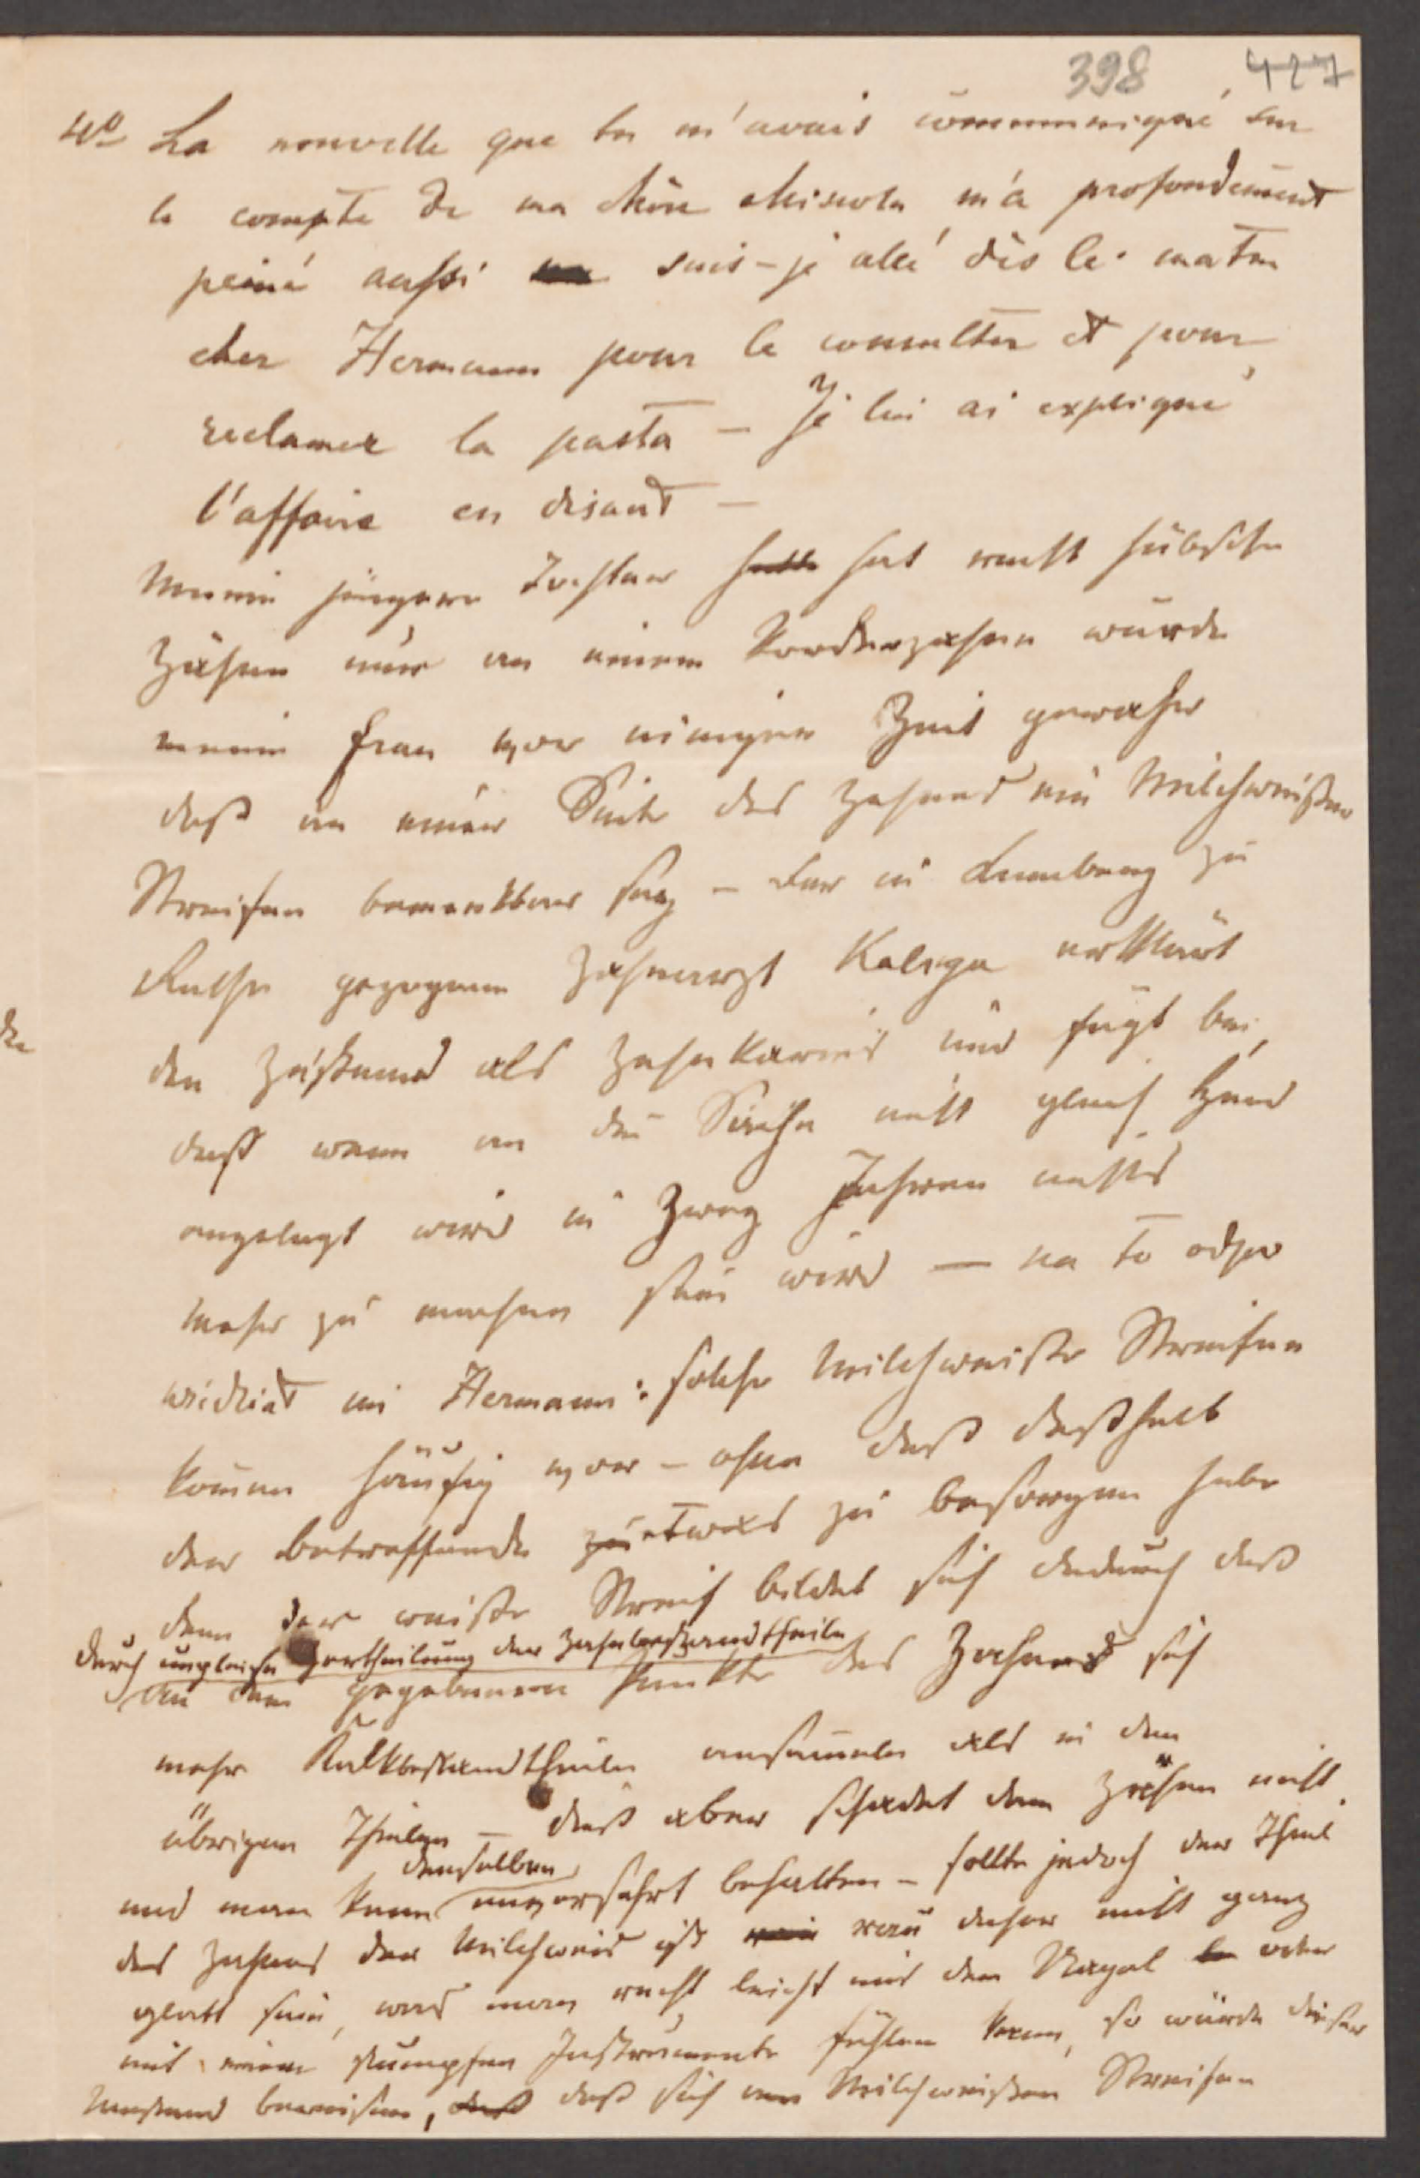 398 427
4o La nouvelle que tu m'avais communiqué sur
le compte de ma chère Misiola m'a profondement
peiné aussi suis-je allé dès le matin
chez Hermann pour le consulter et pour
reclamer la pasta – Je lui ai expliqué
l'affaire en disant –
Meine jüngere Tochter hatte hat recht hübsche
Zähne nur an einem Vorderzahne wurde
meine Frau vor einiger Zeit gewahr
daß an einer Seite des Zahnes ein Milchweißer
Streifen bemerkbar sey – der in Lemberg zu
Rathe gezogene Zahnarzt Kaliga erklärt
den Zustand als Zahnkaries und fügt bei,
daß wenn an die Sache nicht gleich Hand
angelegt wird in Zwey Jahren nichts
mehr zu machen sein wird — na to odpo
wiedział mi Hermann: solche Milchweiße Streifen
komen häufig vor – ohne daß deßhalb
der betreffende zu etwas zu besorgen habe
denn der weiße Streif bildet sich dadurch daß
durch ungleiche Vertheilung der Zahnbestandtheile
an dem gegebenen Punkte des Zahnes sich
mehr Kalkbestandtheile ansameln als in den
übrigen Theilen – dieß aber schadet dem Zähne nicht
denselben
und man kann unversehrt behalten – sollte jedoch der Theil
des Zahnes der Milchweis ist rau daher nicht ganz
glatt sein, was man recht leicht mit dem Nagel oder
mit einem stumpfen Instrumente fühlen kann, so würde dieser
Umstand beweisen, daß daß sich am Milchweißen Streifen